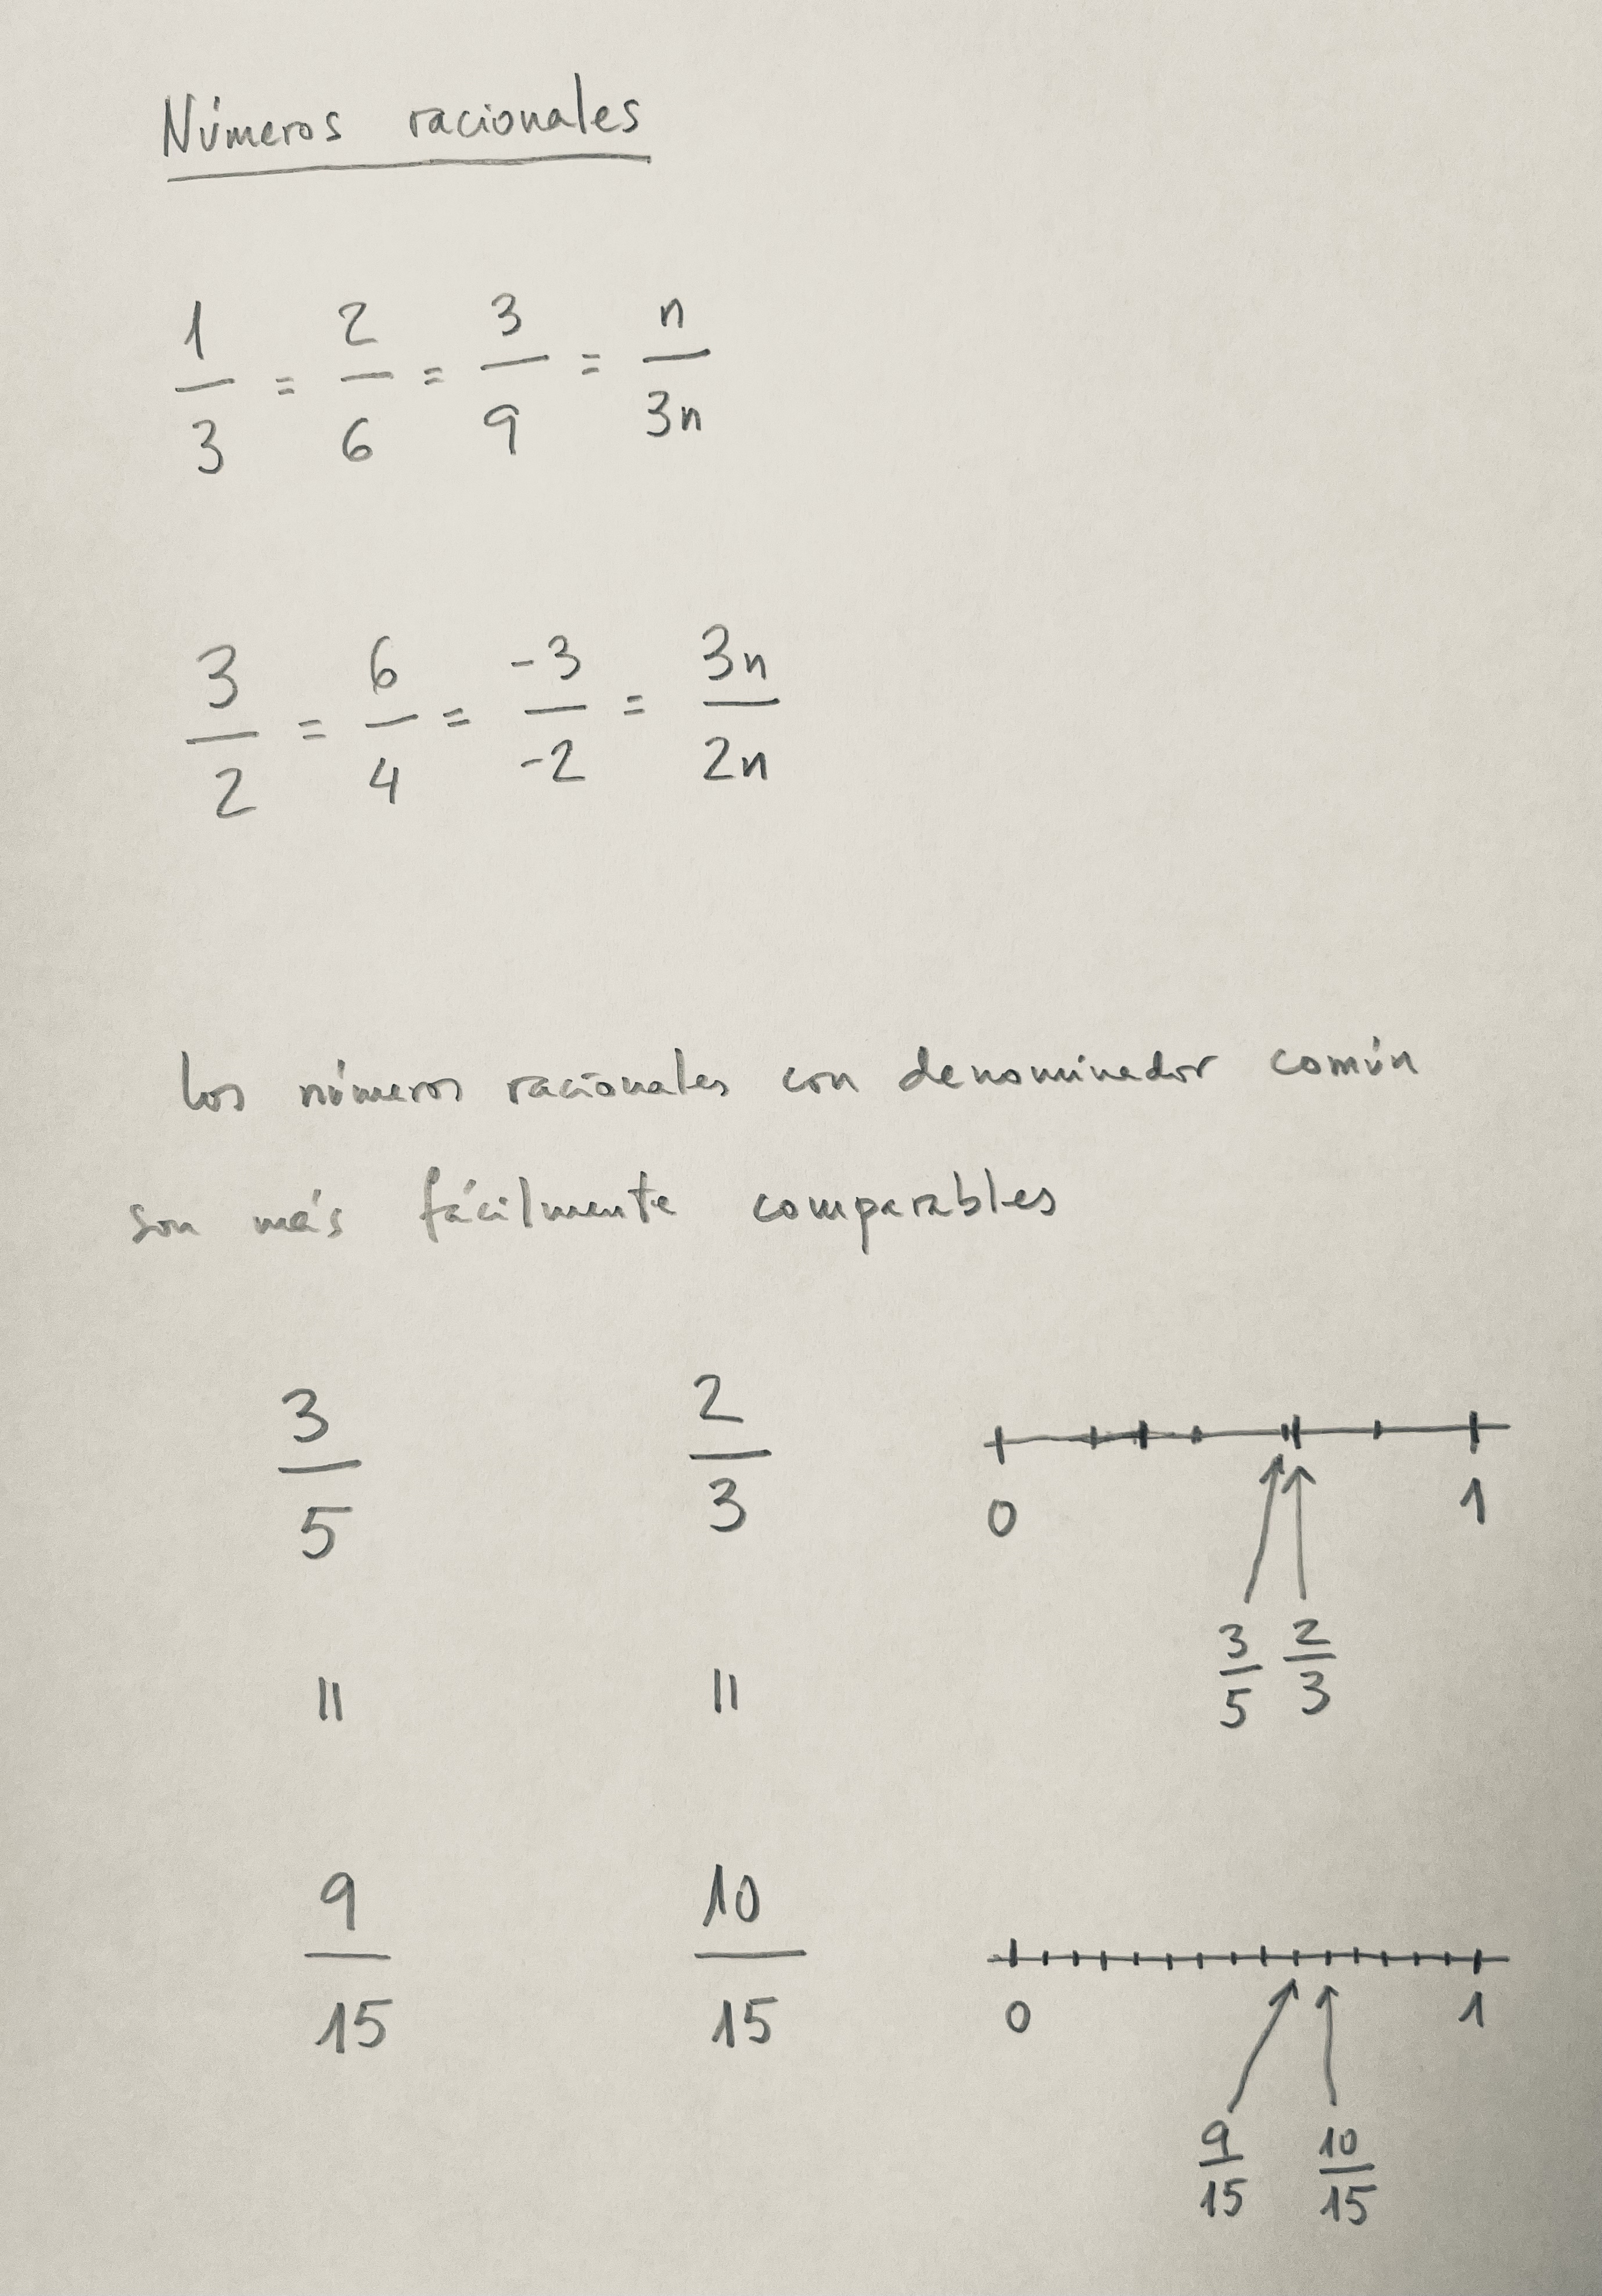 Números racionales
1/3 = 2/6 = 3/9 = n/3n
3/2 = 6/4 = -3/-2 = 3n/2n
Los números racionales con denominador común
son más fácilmente comparables
3/5 2/3
0 1
3/5 2/3
= =
9/15 10/15
0 1
9/15 10/15